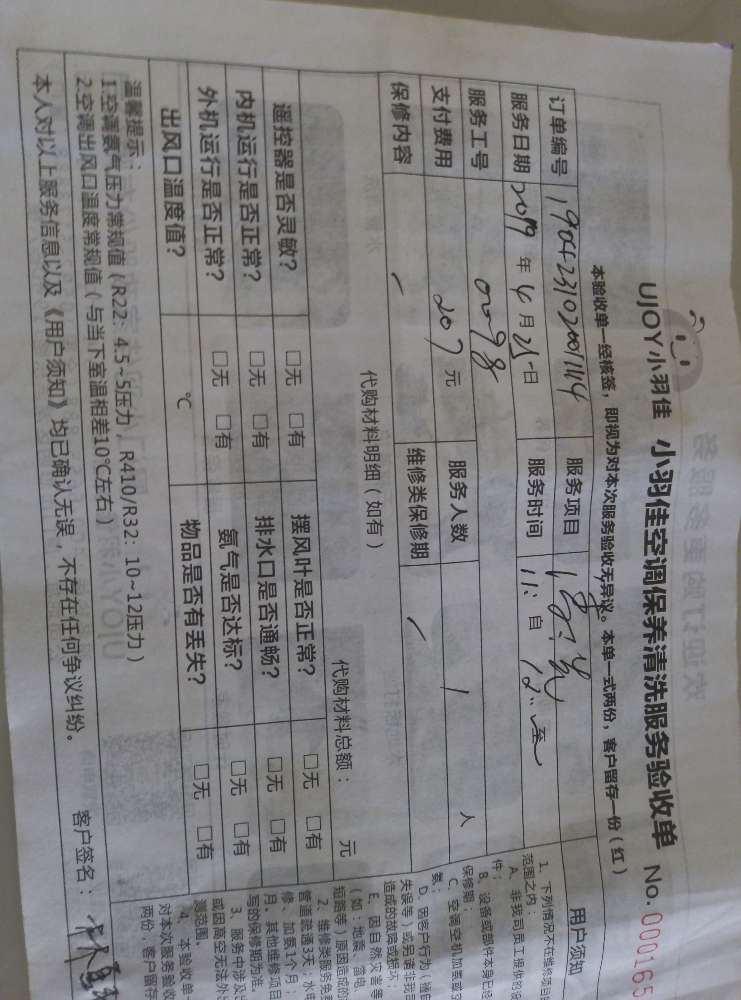 UJOY小羽佳 小羽佳空调保养清洗服务验收单 No. 000165
本验收单一经核签，即视为对本次服务验收无异议。本单一式两份，客户留存一份（红）
订单编号 190423102001114 服务项目
服务日期 2019 年 4 月 25 日 服务时间 11: 自 12: 至
服务工号 0098
支付费用 207 元 服务人数 1 人
保修内容 / 维修类保修期 /
代购材料明细（如有） 代购材料总额： 元
遥控器是否灵敏？ □无 □有 摆风叶是否正常？ □无 □有
内机运行是否正常？ □无 □有 排水口是否通畅？ □无 □有
外机运行是否正常？ □无 □有 氨气是否达标？ □无 □有
出风口温度值？ ℃ 物品是否有丢失？ □无 □有
温馨提示：
1.空调氨气压力常规值（R22：4.5~5压力，R410/R32：10~12压力）
2.空调出风口温度常规值（与当下室温相差10℃左右）
本人对以上服务信息以及《用户须知》均已确认无误，不存在任何争议纠纷。
客户签名：
用户须知
1、下列情况不在维修项目
范围之内：
A、非我司员工提供的
B、设备或部件本身已经
件；
保修期；
C、空调空机加氨高
氨；
D、因客户行为（擅自
失误等）或另请非我司
造成的故障或损坏；
E、因自然灾害等
（如：地震、雷电、
短路等）原因造成的
2、维修类服务免费
管道疏通3天；水电
修、加氨1个月；
月。其他维修项目
写的保修期为准。
3、服务中涉及
或因高空无法外出
测范围。
4、本验收单
对本次服务验收
两份，客户留存